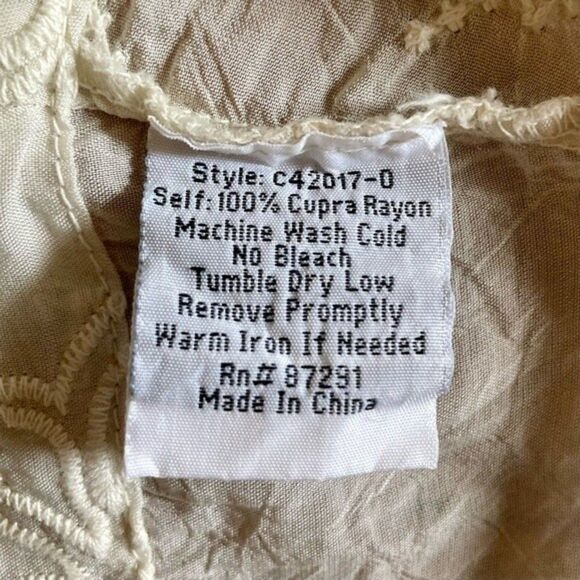 Style: C42017-0
Self: 100% Cupra Rayon
Machine Wash Cold
No Bleach
Tumble Dry Low
Remove Promptly
Warm Iron If Needed
Rn# 97291
Made In China